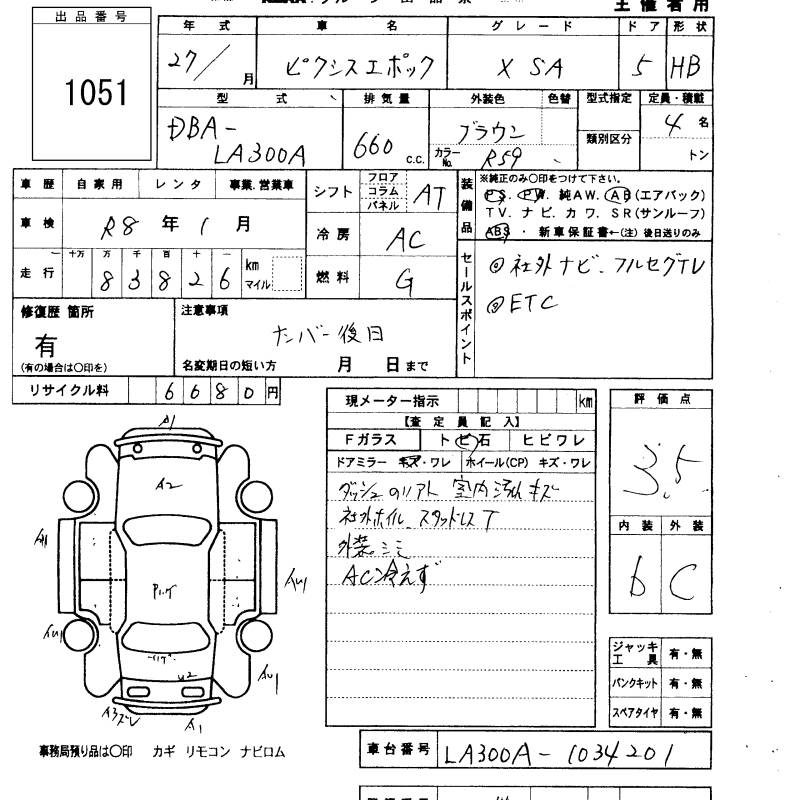 出品番号
1051
主催者用
年式 車名 グレード ドア 形状
27/ 月 ピクシスエポック X SA 5 HB
型式 排気量 外装色 色替 型式指定 定員・積載
DBA-
LA300A
660 c.c.
ブラウン
カラーNo. R59
類別区分
4 名
トン
車歴 自家用 レンタ 事業.営業車
車検 R8 年 1 月
走行 十万 万 千 百 十 一
8 3 8 2 6 km マイル
シフト フロア コラム パネル AT
冷房 AC
燃料 G
装備品
※純正のみ〇印をつけて下さい。
PS. PW. 純AW. AB(エアバック)
TV. ナビ. カワ. SR(サンルーフ)
ABS・新車保証書←(注)後日送りのみ
セールスポイント
◎社外ナビ、フルセグTV
◎ETC
修復歴 箇所
有
(有の場合は〇印を)
注意事項
ナンバー後日
名変期日の短い方 月 日まで
リサイクル料 6680円
現メーター指示 km
【査定員記入】
Fガラス トビ石 ヒビワレ
ドアミラー キズ・ワレ ホイール(CP) キズ・ワレ
室内汚れ キズ
社外ホイル、スタッドレスT
外装シミ
AC冷えず
評価点
3.5
内装 外装
D C
ジャッキ工具 有・無
パンクキット 有・無
スペアタイヤ 有・無
A1
A2
A1
AU1
AU1
AU1
U2
A3ズレ
A1
事務局預り品は〇印 カギ リモコン ナビロム
車台番号 LA300A-1034201